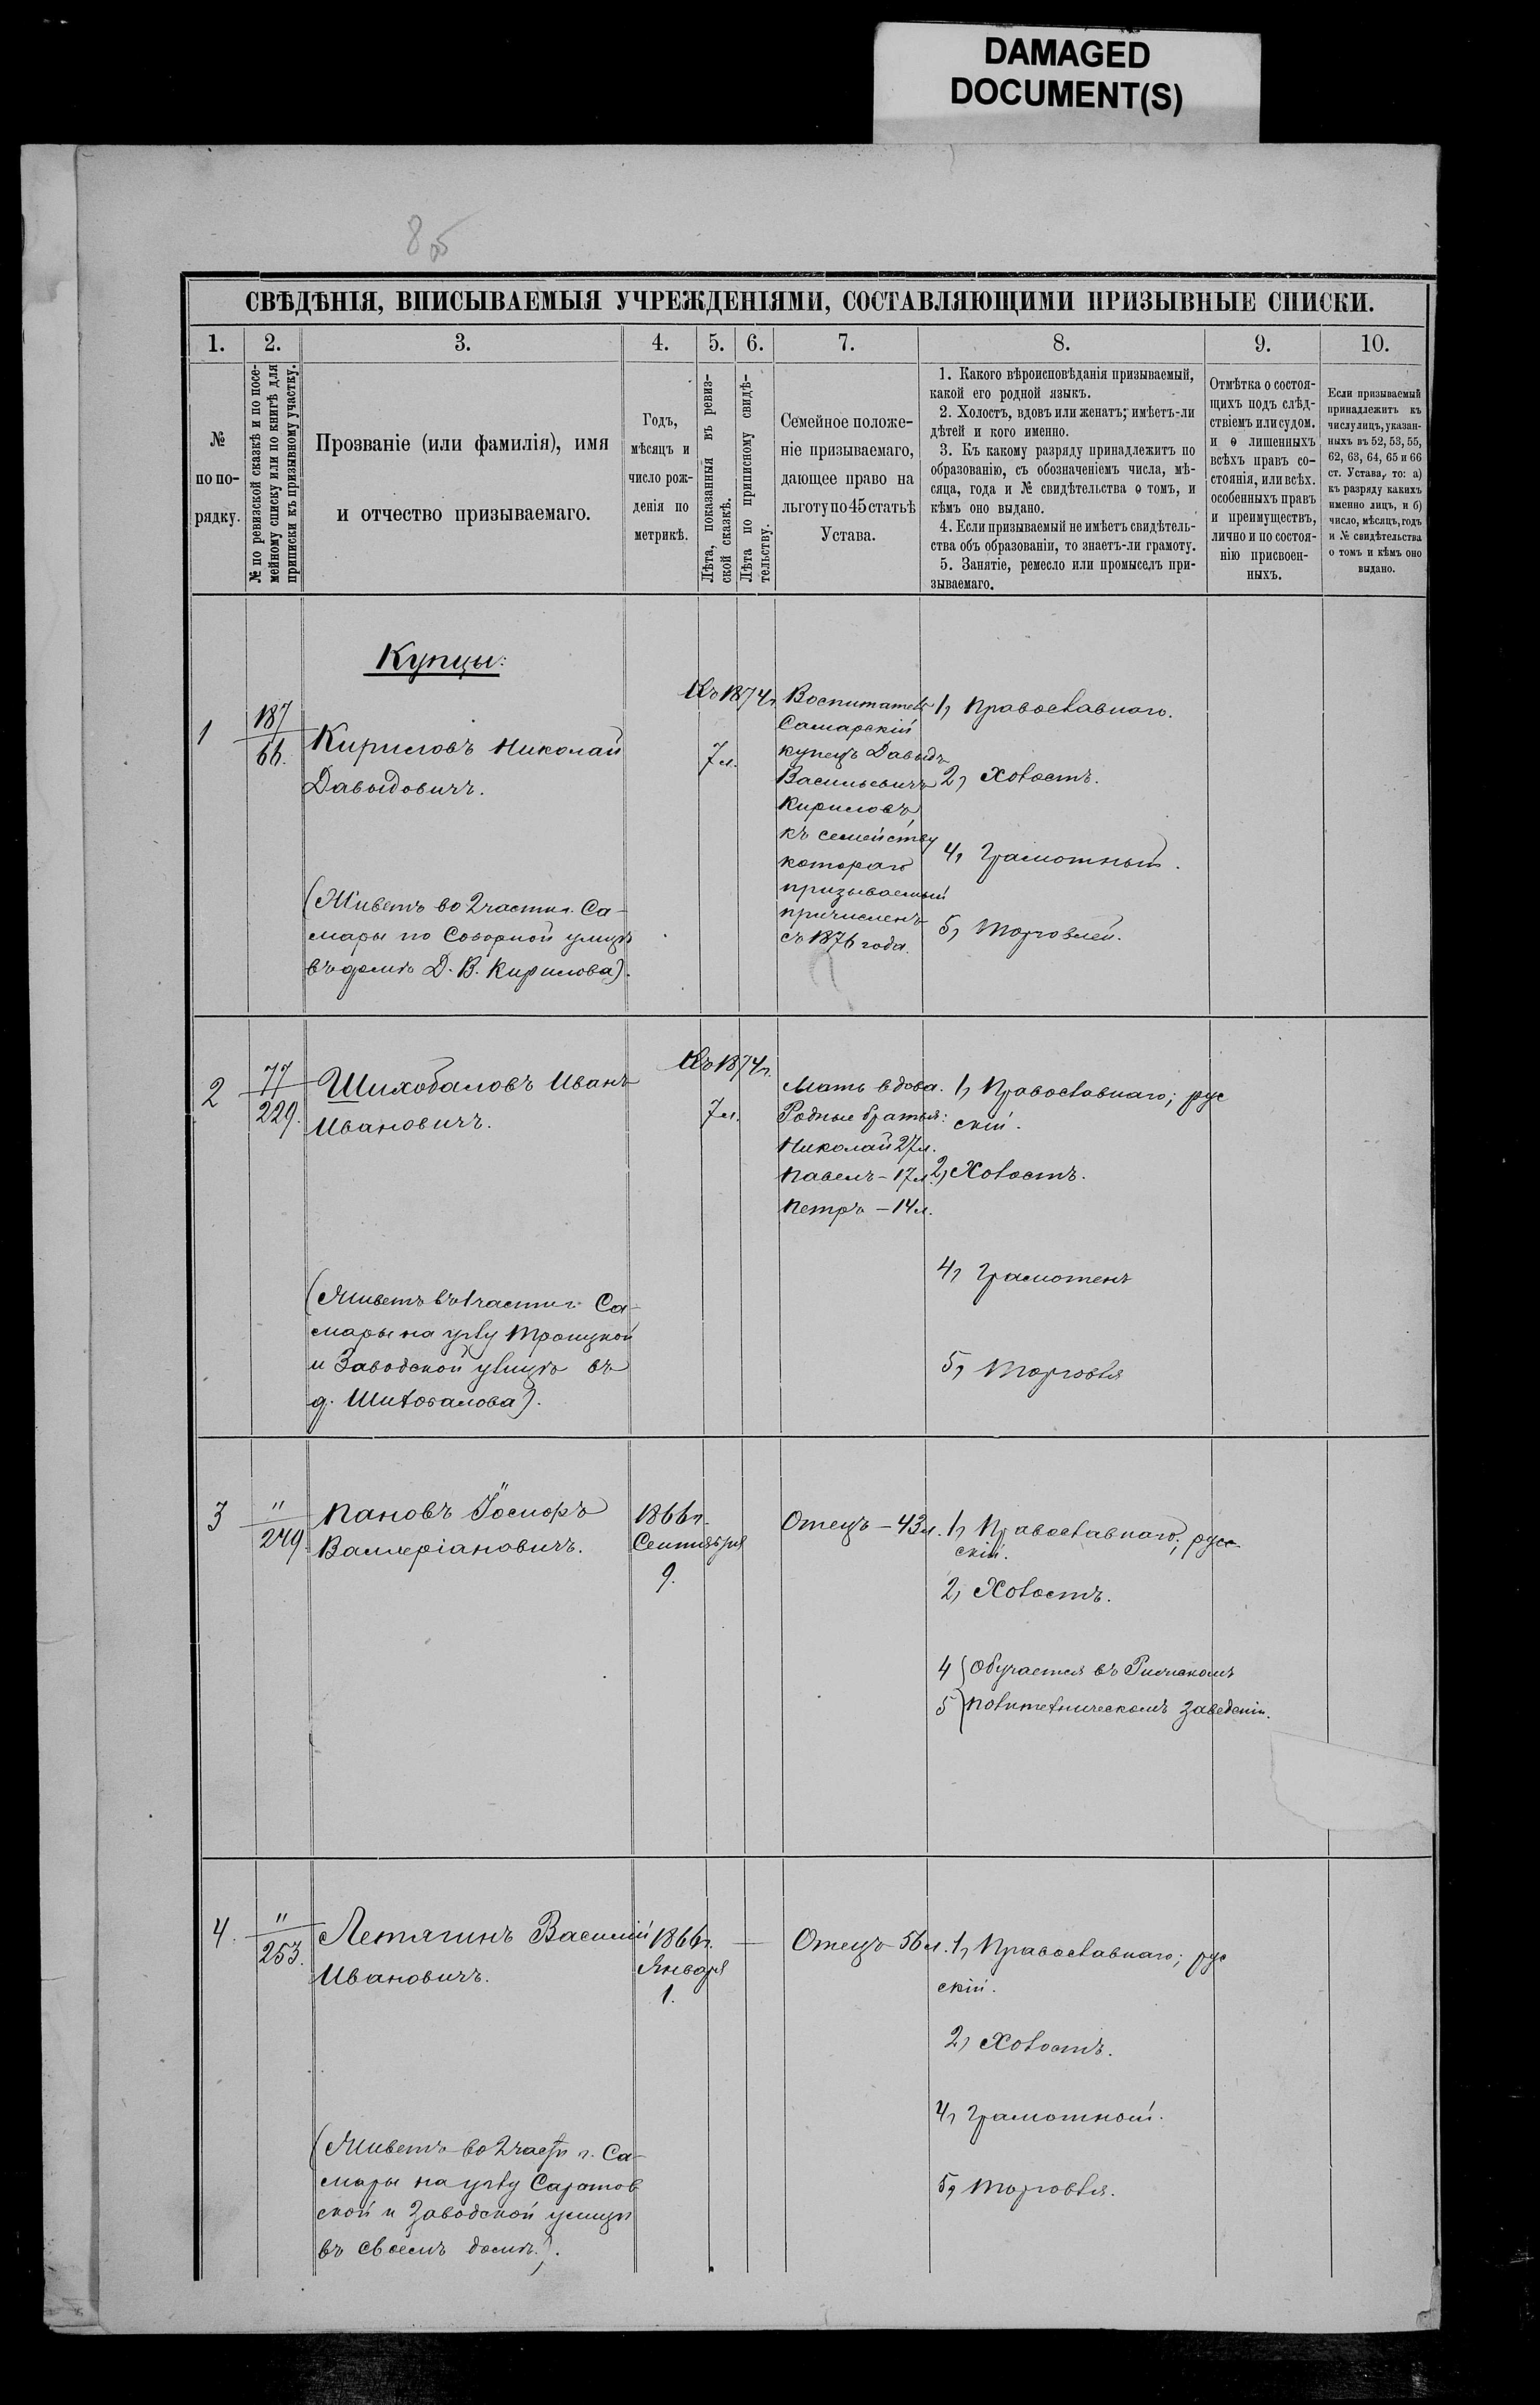 DAMAGED
DOCUMENT(S)
8
СВѢДѢНІЯ, ВПИСЫВАЕМЫЯ УЧРЕЖДЕНІЯМИ, СОСТАВЛЯЮЩИМИ ПРИЗЫВНЫЕ СПИСКИ.
1. 2. 3. 4. 5. 6. 7. 8. 9. 10.
№
по по-
рядку.
№ по ревизской сказкѣ и по посе-
мейному списку или по книгѣ для
приписки къ призывному участку.
Прозваніе (или фамилія), имя
и отчество призываемаго.
Годъ,
мѣсяцъ и
число рож-
денія по
метрикѣ.
Лѣта, показанныя въ ревиз-
ской сказкѣ.
Лѣта по приписному свидѣ-
тельству.
Семейное положе-
ніе призываемаго,
дающее право на
льготу по 45 статьѣ
Устава.
1. Какого вѣроисповѣданія призываемый,
какой его родной языкъ.
2. Холостъ, вдовъ или женатъ; имѣетъ-ли
дѣтей и кого именно.
3. Къ какому разряду принадлежитъ по
образованію, съ обозначеніемъ числа, мѣ-
сяца, года и № свидѣтельства о томъ, и
кѣмъ оно выдано.
4. Если призываемый не имѣетъ свидѣтель-
ства объ образованіи, то знаетъ-ли грамоту.
5. Занятіе, ремесло или промыселъ при-
зываемаго.
Отмѣтка о состоя-
щихъ подъ слѣд-
ствіемъ или судом.
и о лишенныхъ
всѣхъ правъ со-
стоянія, или всѣх.
особенныхъ правъ
и преимуществъ,
лично и по состоя-
нію присвоен-
ныхъ.
Если призываемый
принадлежитъ къ
числу лицъ, указан-
ныхъ въ 52, 53, 55,
62, 63, 64, 65 и 66
ст. Устава, то: а)
къ разряду какихъ
именно лицъ, и б)
число, мѣсяцъ, годъ
и № свидѣтельства
о томъ и кѣмъ оно
выдано.
Купцы:
1
187
66.
Кириловъ Николай
Давыдовичъ.
(Живетъ во 2 части г. Са-
мары по Соборной улицѣ
въ домѣ Д. В. Кирилова).
Къ 1874 г.
7 л.
Воспитатель
Самарскій
купецъ Давыдъ
Васильевичъ
Кириловъ,
къ семейству
котораго
призываемый
причисленъ
съ 1876 года.
1, Православнаго.
2, Холостъ.
4, Грамотный.
5, Торговлей.
2
77
229.
Шихобаловъ Иванъ
Ивановичъ.
(Живетъ въ 1 части г. Са-
мары на углу Троицкой
и Заводской улицъ въ
д. Шихобалова).
Къ 1874 г.
7 л.
Мать вдова.
Родные братья:
Николай 27 л.
Павелъ - 17 л.
Петръ - 14 л.
1, Православнаго; рус
скій.
2, Холостъ.
4, Грамотенъ
5, Торговля
3
"
249
Пановъ
Валлеріановичъ.
1866 г.
Сентября
9.
Отецъ - 43 л.
1, Православнаго; рус-
скій.
2, Холостъ.
4 Обучается въ Рижскомъ
5 политехническомъ заведеніи.
4.
"
253.
Летягинъ Василій
Ивановичъ.
(Живетъ во 2 части г. Са-
мары на углу Саратов
ской и Заводской улицъ
въ своемъ домѣ.).
1866 г.
Января
1.
Отецъ - 56 л.
1, Православнаго; рус
скій.
2, Холостъ.
4, Грамотной.
5, Торговля.